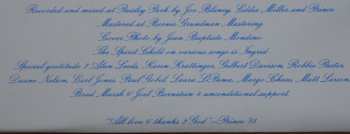 Recorded and mixed at Paisley Park by Joe Blaney, Eddie Miller and Prince
Mastered at Bernie Grundman Mastering
Cover Photo by Jean Baptiste Mondino
The Spirit Child on various songs is Ingrid
Special gratitude 2 Alan Leeds, Karen Krattinger, Gilbert Davison, Robbie Paster,
Duane Nelson, Earl Jones, Paul Gobel, Laura LiPuma, Margo Chaon, Matt Larson,
Brad Marsh & Joel Bernstein 4 unconditional support.
"All love & thanks 2 God" - Prince '88